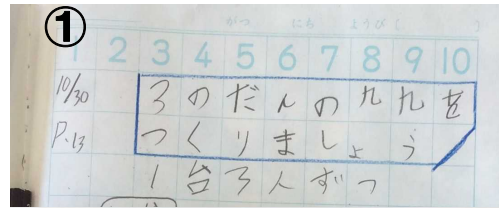 ①
がつ にち ようび( )
1 2 3 4 5 6 7 8 9 10
10/30 3のだんの九九を
P.13 つくりましょう
1台3人ずつ